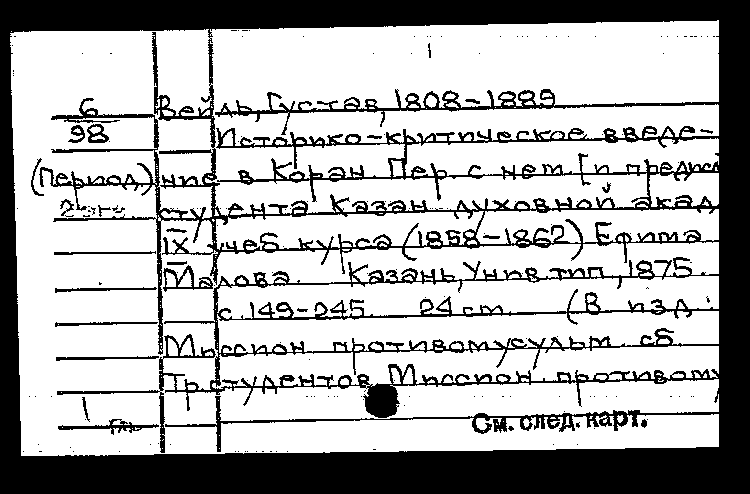 6 Вейль, Густав, 1808-1889
98 Историко-критическое введе-
(Период.) ние в Коран Пер. с нем. [и предисл
студента Казан духовной акад
IX учеб курса (1858-1862) Ефима
Малова. Казань, Унив. тип, 1875.
с. 149-245. 24 cm. (В изд:
Миссион противомусульм сб.
Тр. студентов Миссион. противому
1
См. след. карт.